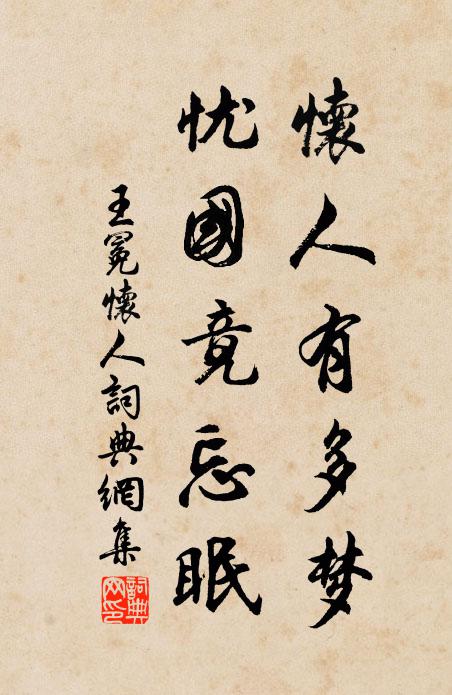 懷人有多梦
忧國竟忘眠
王冕懷人詞典網集
詞典
网印